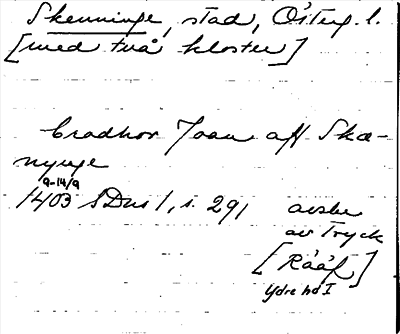 Skenninge, stad, Österg. l.
[med två kloster]
brodhor Joan aff Skæ-
nynge
9-14/9
1403 SDns 1, s. 291 avskr
av tryck
[Rääf]
Ydre hd I